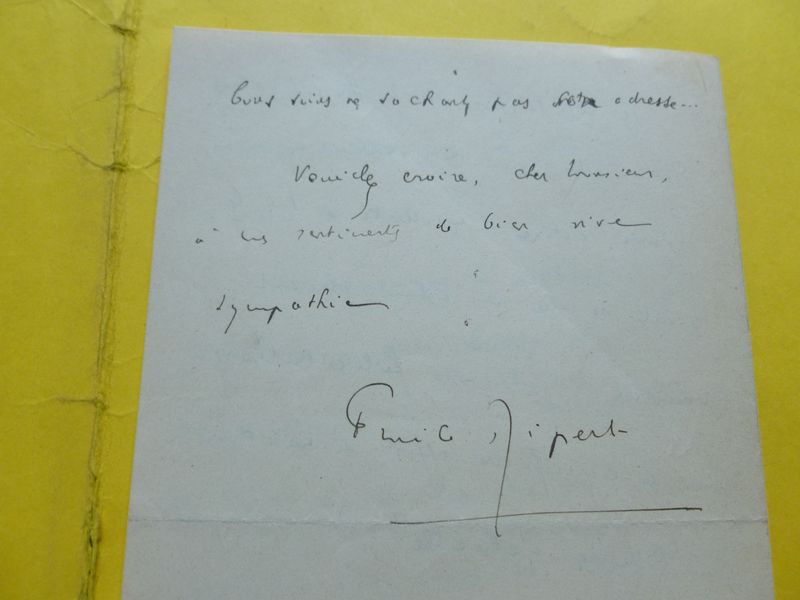 ne sachant pas votre adresse...
Veuillez croire, cher Monsieur,
à mes sentiments de bien vive
sympathie
Emile Ripert